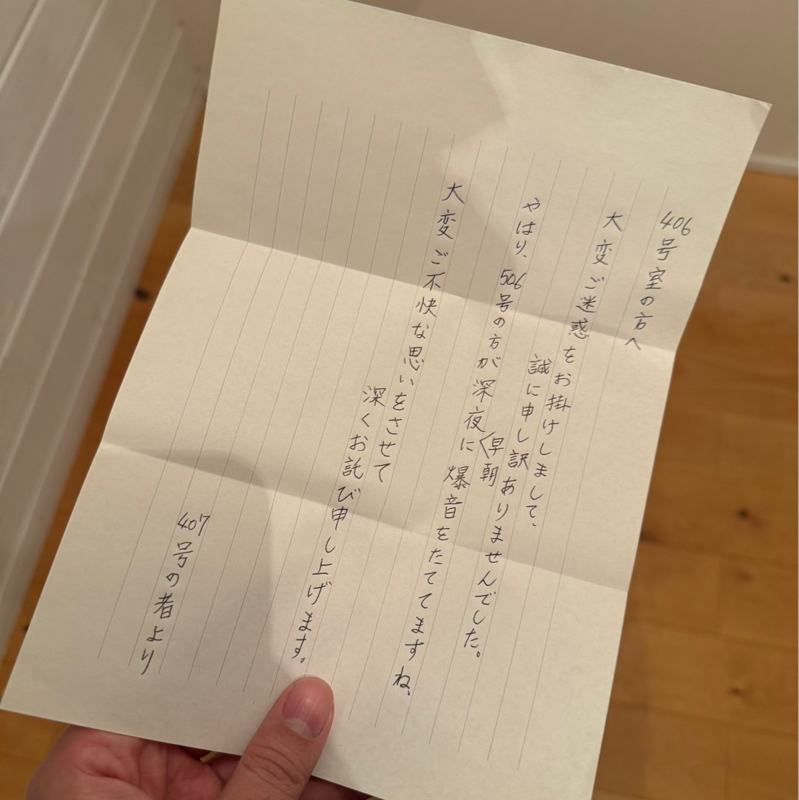 406号室の方へ
大変ご迷惑をお掛けしまして、
誠に申し訳ありませんでした。
やはり、506号の方が深夜早朝に爆音をたててますね、
大変ご不快な思いをさせて
深くお詑び申し上げます。
407号の者より